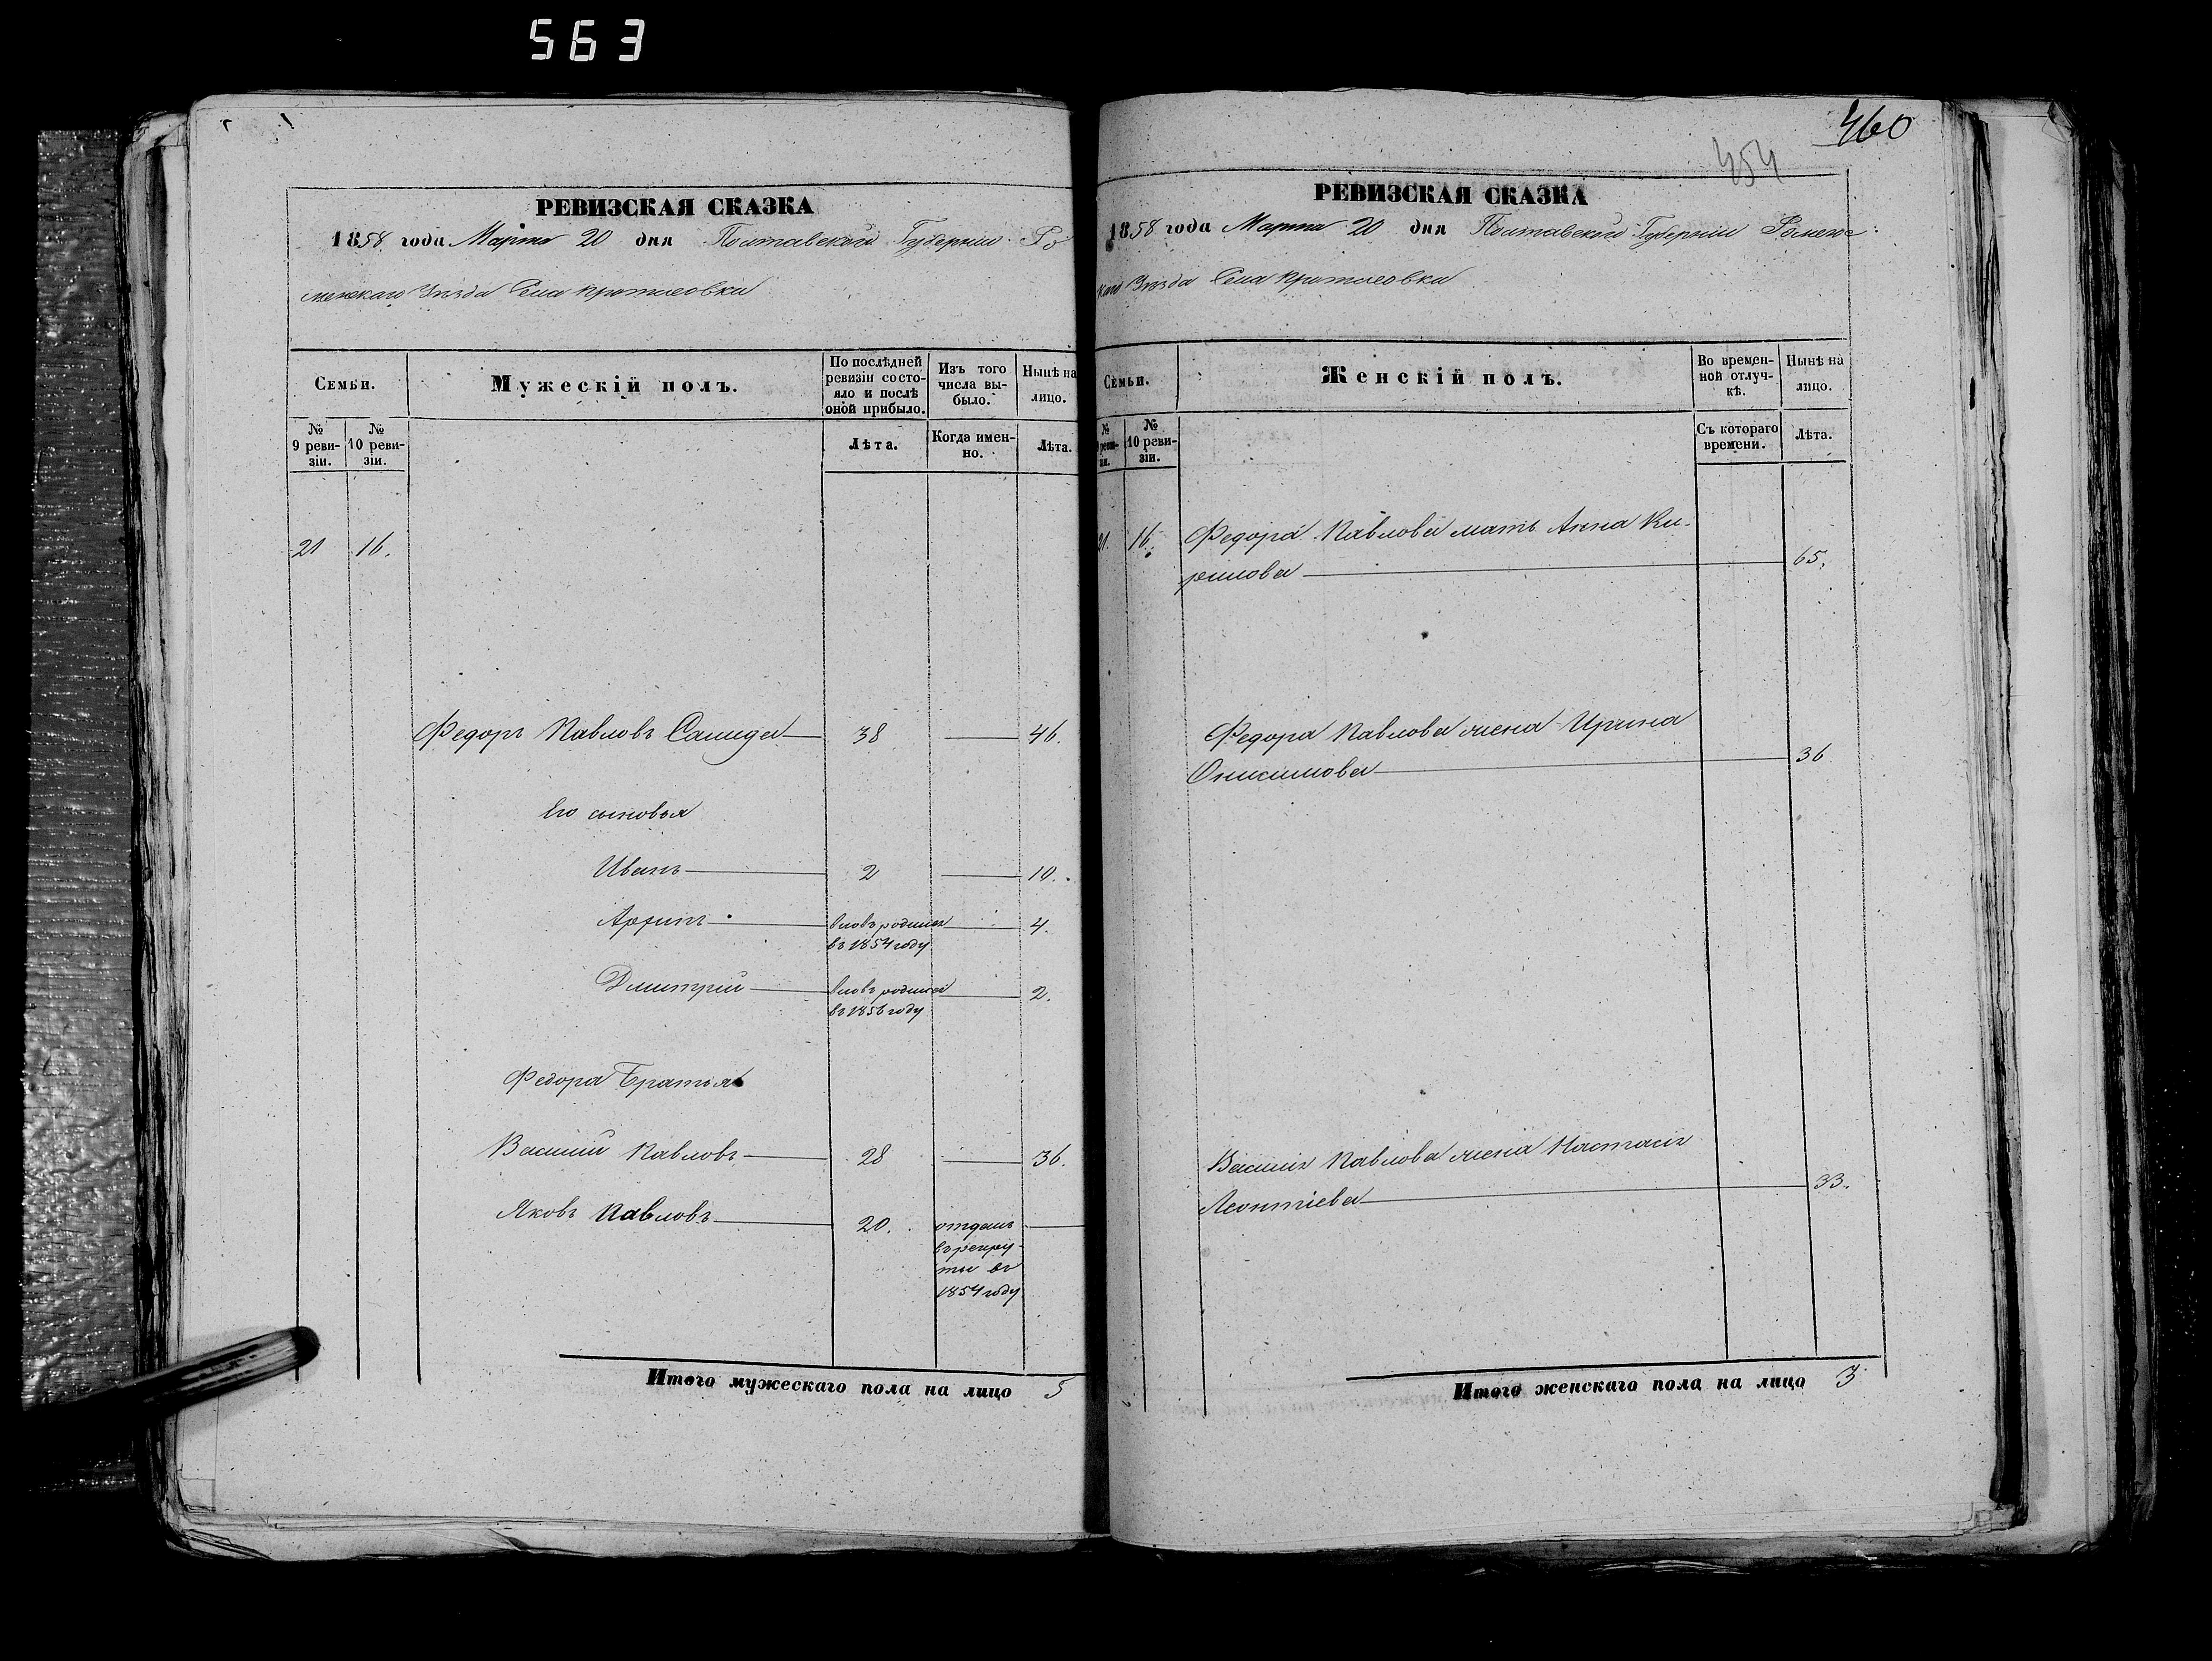 563
РЕВИЗСКАЯ СКАЗКА
1858 года Марта 20 дня Полтавской Губернiи Ро
менскаго Уѣзда Села
Семьи.
Мужескiй полъ.
По послѣдней
ревизiи состо-
яло и послѣ
оной прибыло.
Изъ того
числа вы-
было.
Нынѣ на
лицо.
№
9 реви-
зiи.
№
10 реви-
зiи.
Лѣта.
Когда имен-
но.
Лѣта.
21 16.
Федоръ Павловъ 38 46.
Его сыновья
Иванъ 2 10.
вновь родился 4.
въ 1854 году
Дмитрiй вновь родился 2.
въ 1856 году
Федора Братья
Василiй Павловъ 28 36.
Яковъ Павловъ 20. отданъ
въ рекру-
ты въ
1854 году
Итого мужескаго пола на лицо 5
460
454
РЕВИЗСКАЯ СКАЗКА
1858 года Марта 20 дня Полтавской Губернiи Роменс
каго Уѣзда Села
Семьи.
Женскiй полъ.
Во времен-
ной отлуч-
кѣ.
Нынѣ на
лицо.
№
9 реви-
зiи.
№
10 реви-
зiи.
Съ котораго
времени.
Лѣта.
21. 16. Федора Павлова мать Анна Ки-
рилова 65.
Федора Павлова жена Ирина
Онисимова 36
Василiя Павлова жена Настасiя
Леонтiева 33.
Итого женскаго пола на лицо 3